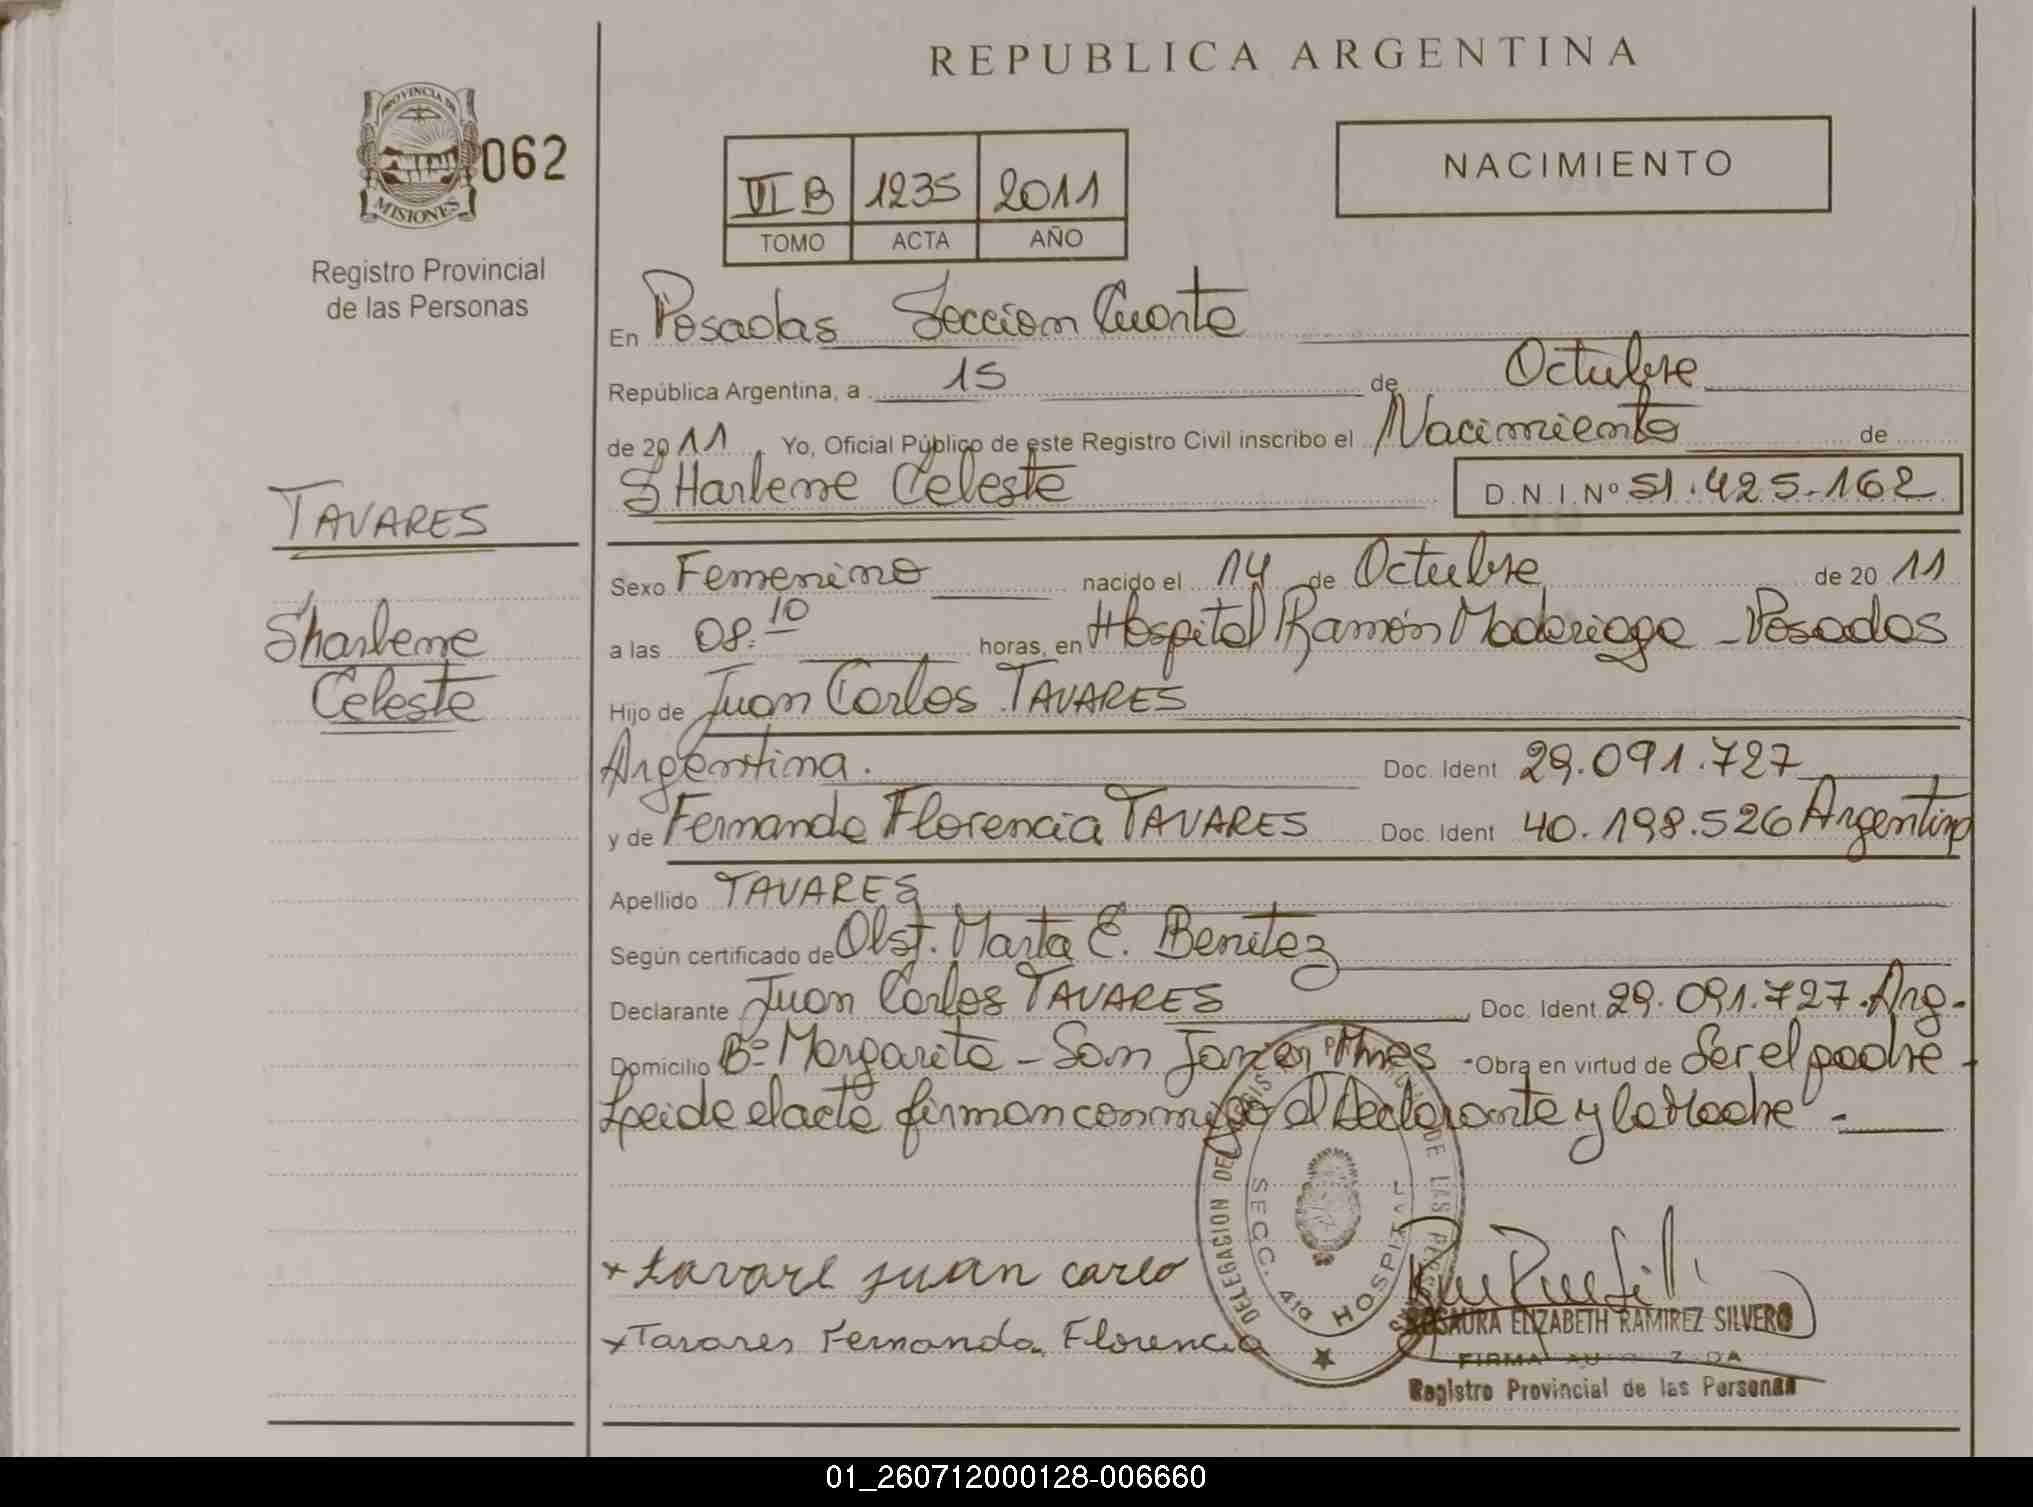 REPUBLICA ARGENTINA
PROVINCIA DE
MISIONES
062
Registro Provincial
de las Personas
NACIMIENTO
VI B 1235 2011
TOMO ACTA AÑO
En Posadas Seccion Cuarta
República Argentina, a 15 de Octubre
de 2011. Yo, Oficial Público de este Registro Civil inscribo el Nacimiento de
SHarlene Celeste D.N.I.Nº 51.425.162
TAVARES
Sharlene
Celeste
Sexo Femenino nacido el 14 de Octubre de 2011
a las 08:10 horas, en Hospital Ramón Madariaga - Posadas
Hijo de Juan Carlos TAVARES
Argentina. Doc. Ident 29.091.727
y de Fernanda Florencia TAVARES Doc. Ident 40.198.526 Argentina
Apellido TAVARES
Según certificado de Obst. Marta E. Benitez
Declarante Juan Carlos TAVARES Doc. Ident. 29.091.727. Arg.
Domicilio Bº Margarita - San Javier Mnes - Obra en virtud de Ser el padre -
Leida el acta firman conmigo el Declarante y la Madre -
DELEGACION DEL REGISTRO DE LAS
SECC. 4ta HOSPITAL
x tavare juan carlo
x Tavares Fernanda Florencia
ROSAURA ELIZABETH RAMIREZ SILVERO
FIRMA AUTORIZADA
Registro Provincial de las Personas
01_260712000128-006660